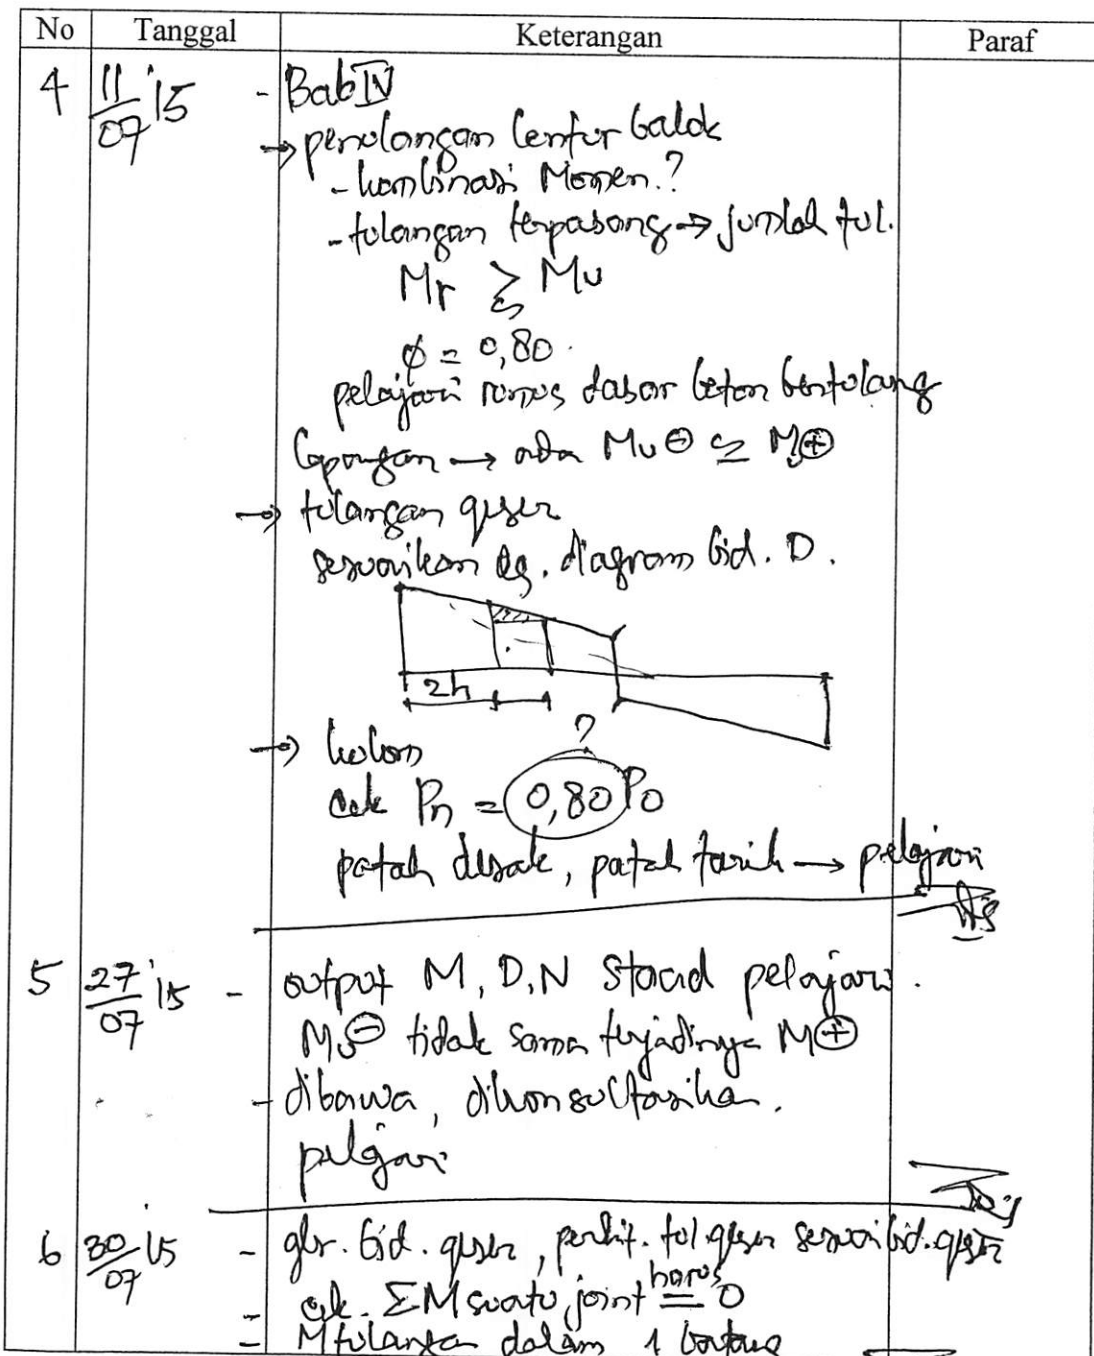 No Tanggal Keterangan Paraf
4 11/07 '15 - Bab IV
→ penulangan lentur balok
- kombinasi Momen ?
- tulangan terpasang → jumlah tul.
Mr ≥ Mu
φ = 0,80
pelajari rumus dasar beton bertulang
lapangan → ada Mu ⊖ Mu ⊕
→ tulangan geser
sesuaikan dg. diagram bid. D.
2h
→ kolom
?
cek Pn = 0,80 Po
patah desak, patah tarik → pelajari
5 27/07 '15 - output M, D, N Staad pelajari.
Mu ⊖ tidak sama terjadinya M ⊕
- dibawa, dikonsultasikan.
pelajari
6 30/07 '15 - gbr. bid. geser, perhit. tul. geser sesuai bid. geser
- cek. ΣM suatu joint harus = 0
- M tulangan dalam 1